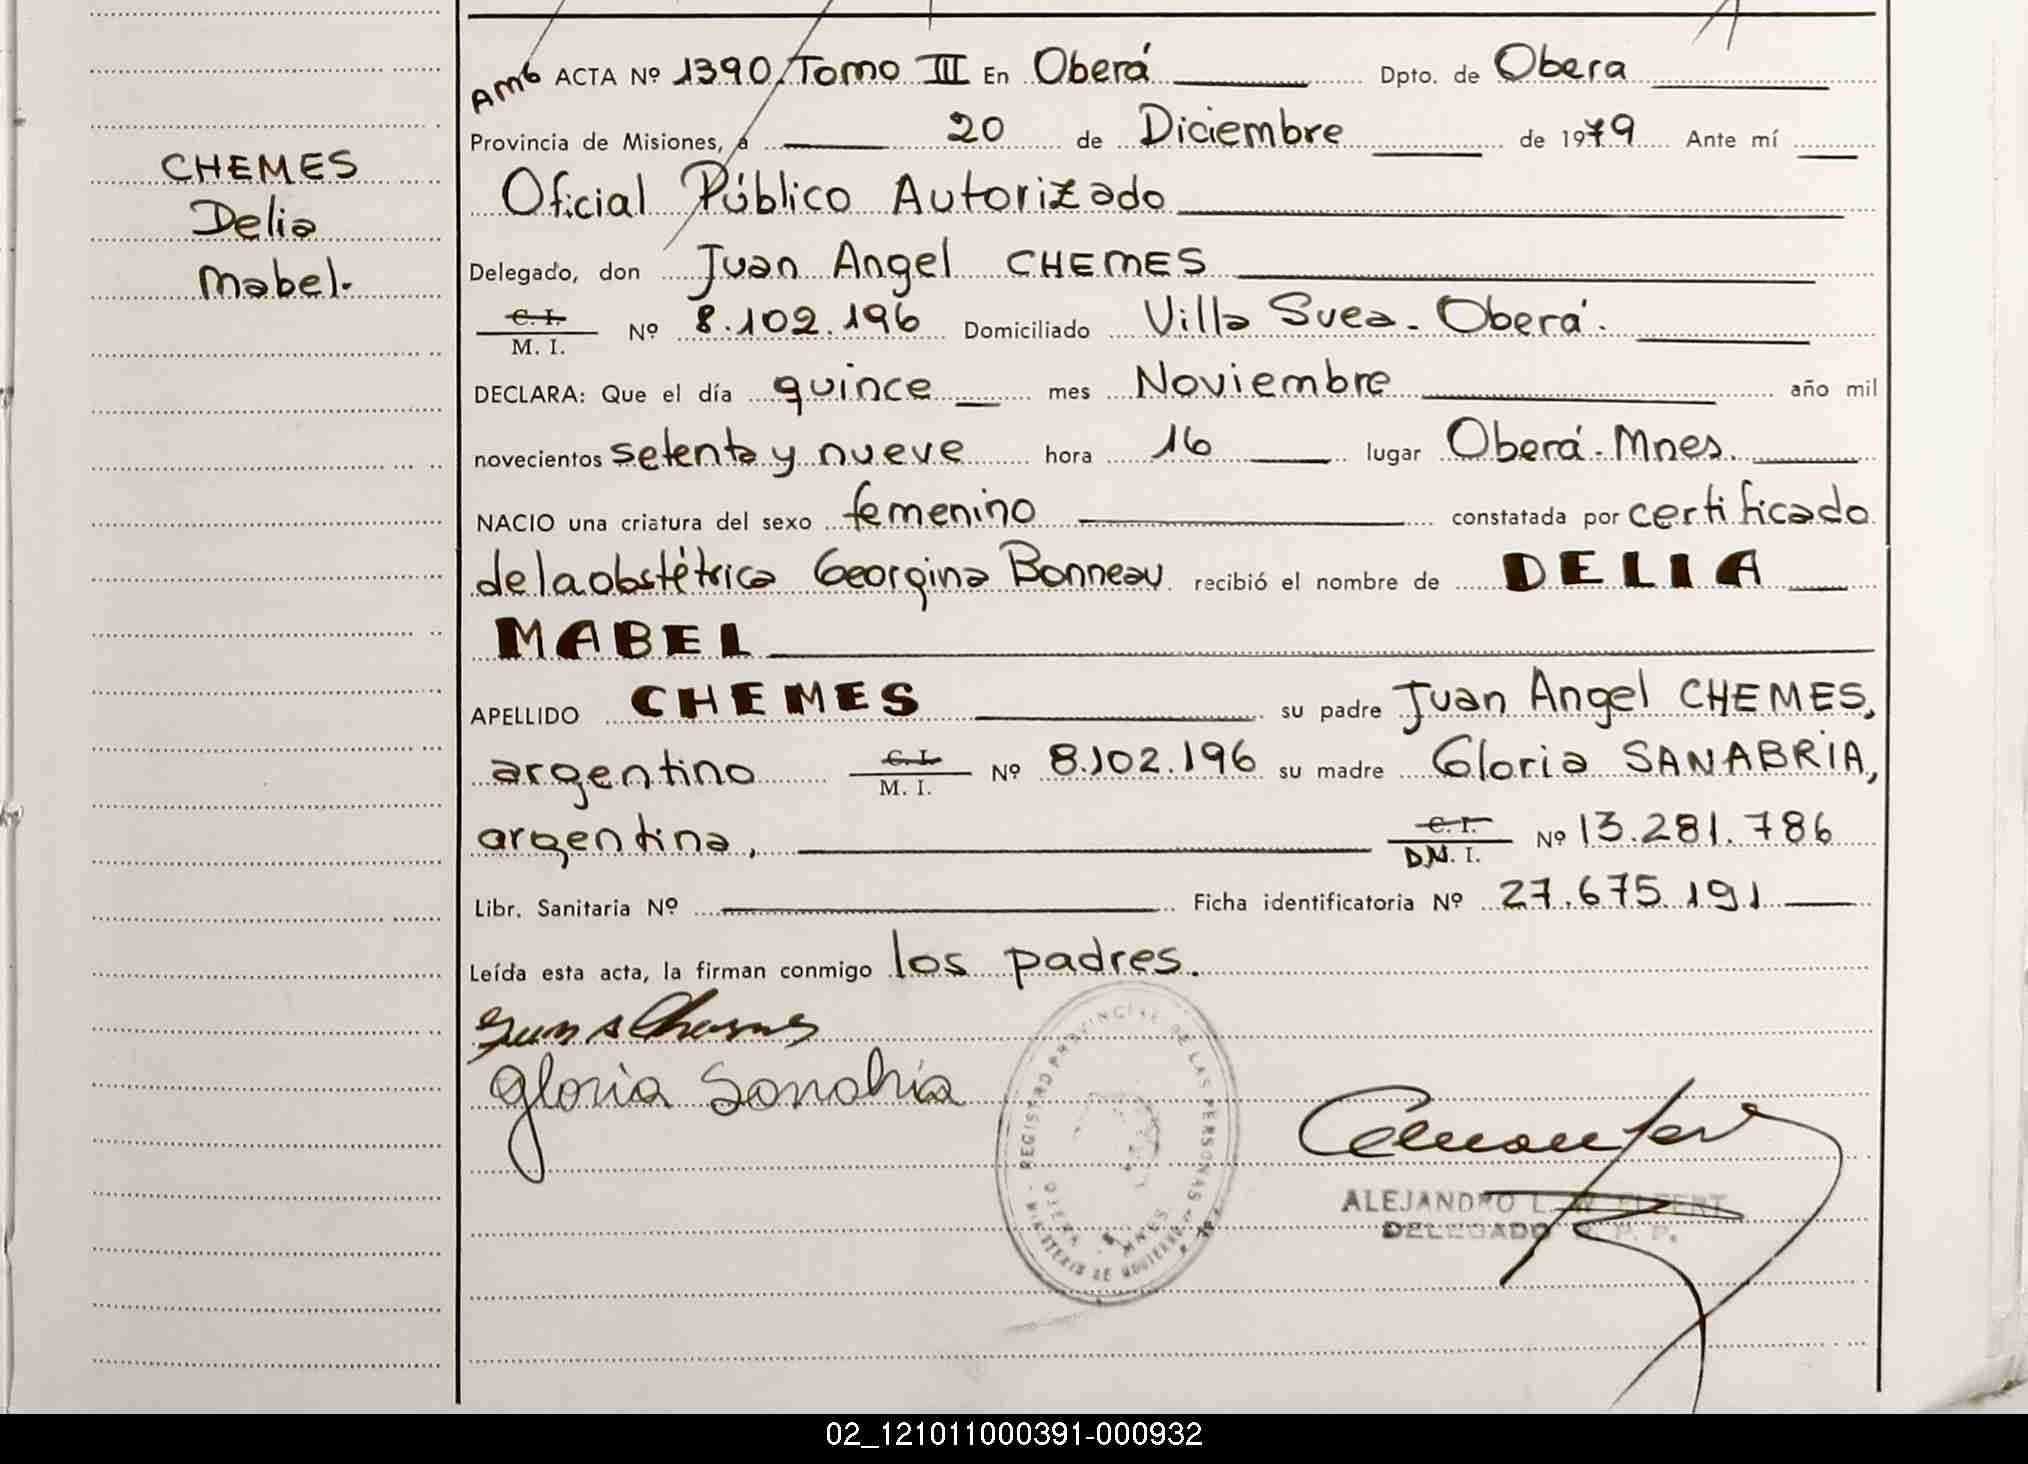 CHEMES
Delia
Mabel.
Amb ACTA Nº 1390 Tomo III En Oberá Dpto. de Obera
Provincia de Misiones, a 20 de Diciembre de 1979 Ante mí
Oficial Público Autorizado
Delegado, don Juan Angel CHEMES
C. I.
M. I. Nº 8.102.196 Domiciliado Villa Svea. Oberá.
DECLARA: Que el día quince mes Noviembre año mil
novecientos setenta y nueve hora 16 lugar Oberá. Mnes.
NACIO una criatura del sexo femenino constatada por certificado
de la obstétrica Georgina Bonneau recibió el nombre de DELIA
MABEL
APELLIDO CHEMES su padre Juan Angel CHEMES,
argentino C. I. M. I. Nº 8.102.196 su madre Gloria SANABRIA,
argentina, C. I. D.N. I. Nº 13.281.786
Libr. Sanitaria Nº Ficha identificatoria Nº 27.675.191
Leída esta acta, la firman conmigo los padres.
Juan A Chemes
Gloria Sanabria
REGISTRO PROVINCIAL DE LAS PERSONAS
MINISTERIO DE GOBIERNO
MNES
ALEJANDRO L. W
DELEGADO R. P. P.
02_121011000391-000932